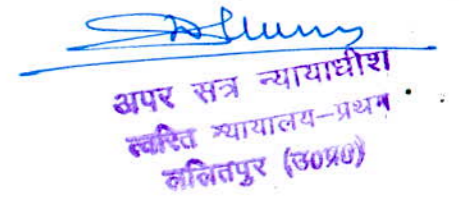 अपर सत्र न्यायाधीश
त्वरित न्यायालय-प्रथम
ललितपुर (उ०प्र०)